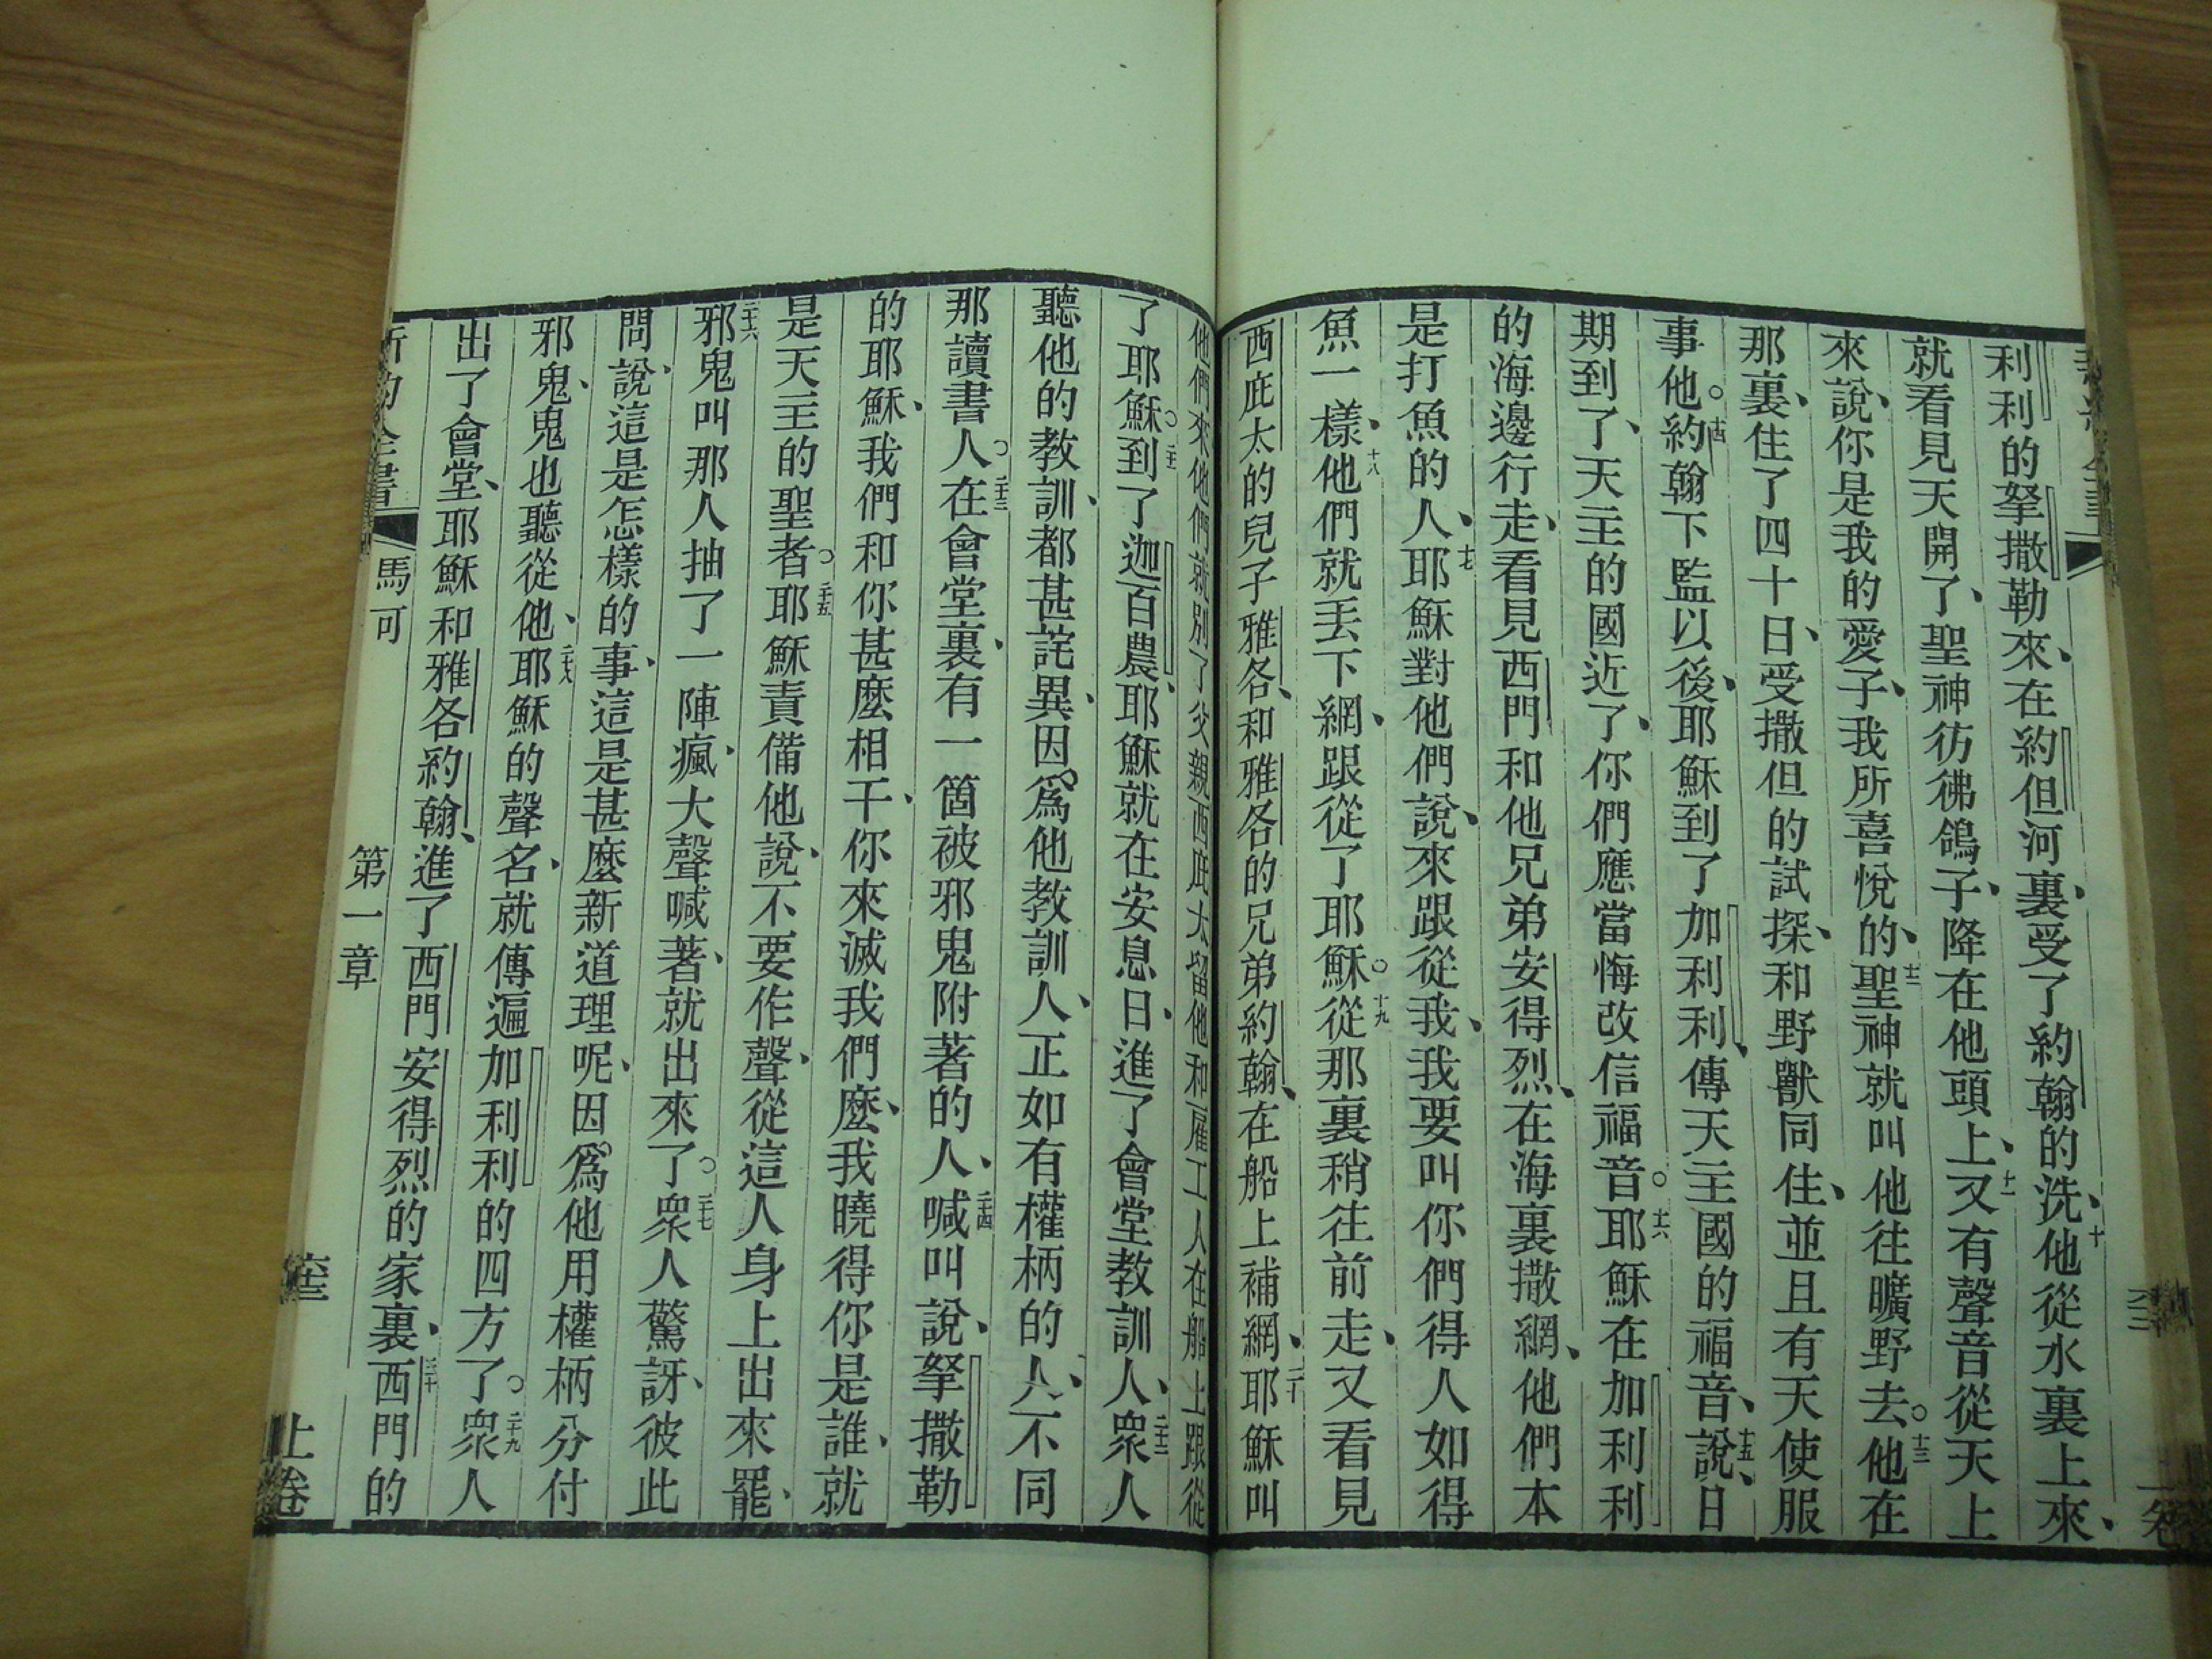 利利的拏撒勒來、在約但河裏、受了約翰的洗、十他從水裏上來、
就看見天開了、聖神彷彿鴿子、降在他頭上、十一又有聲音從天上
來說、你是我的愛子、我所喜悅的、十二聖神就叫他往曠野去。十三他在
那裏、住了四十日、受撒但的試探、和野獸同住、並且有天使服
事他。十四約翰下監以後、耶穌到了加利利、傳天主國的福音、十五說、日
期到了、天主的國近了、你們應當悔改信福音。十六耶穌在加利利
的海邊行走、看見西門和他兄弟安得烈、在海裏撒網、他們本
是打魚的人、十七耶穌對他們說、來跟從我、我要叫你們得人如得
魚一樣、十八他們就丟下網、跟從了耶穌。十九從那裏稍往前走、又看見
西庇太的兒子雅各、和雅各的兄弟約翰、在船上補網、二十耶穌叫
他們來他們就別了父親西庇太留他和雇工人在船上跟從
了耶穌。二十一到了迦百農、耶穌就在安息日、進了會堂教訓人、二十二衆人
聽他的教訓、都甚詫異、因爲他教訓人、正如有權柄的人、不同
那讀書人。二十三在會堂裏、有一箇被邪鬼附著的人、二十四喊叫說、拏撒勒
的耶穌、我們和你甚麼相干、你來滅我們麼、我曉得你是誰、就
是天主的聖者。二十五耶穌責備他說、不要作聲、從這人身上出來罷、
二十六邪鬼叫那人抽了一陣瘋、大聲喊著、就出來了。二十七衆人驚訝、彼此
問說、這是怎樣的事、這是甚麼新道理呢、因爲他用權柄分付
邪鬼、鬼也聽從他、二十八耶穌的聲名、就傳遍加利利的四方了。二十九衆人
出了會堂、耶穌和雅各約翰、進了西門安得烈的家裏、三十西門的
新約全書 馬可 第一章 上卷